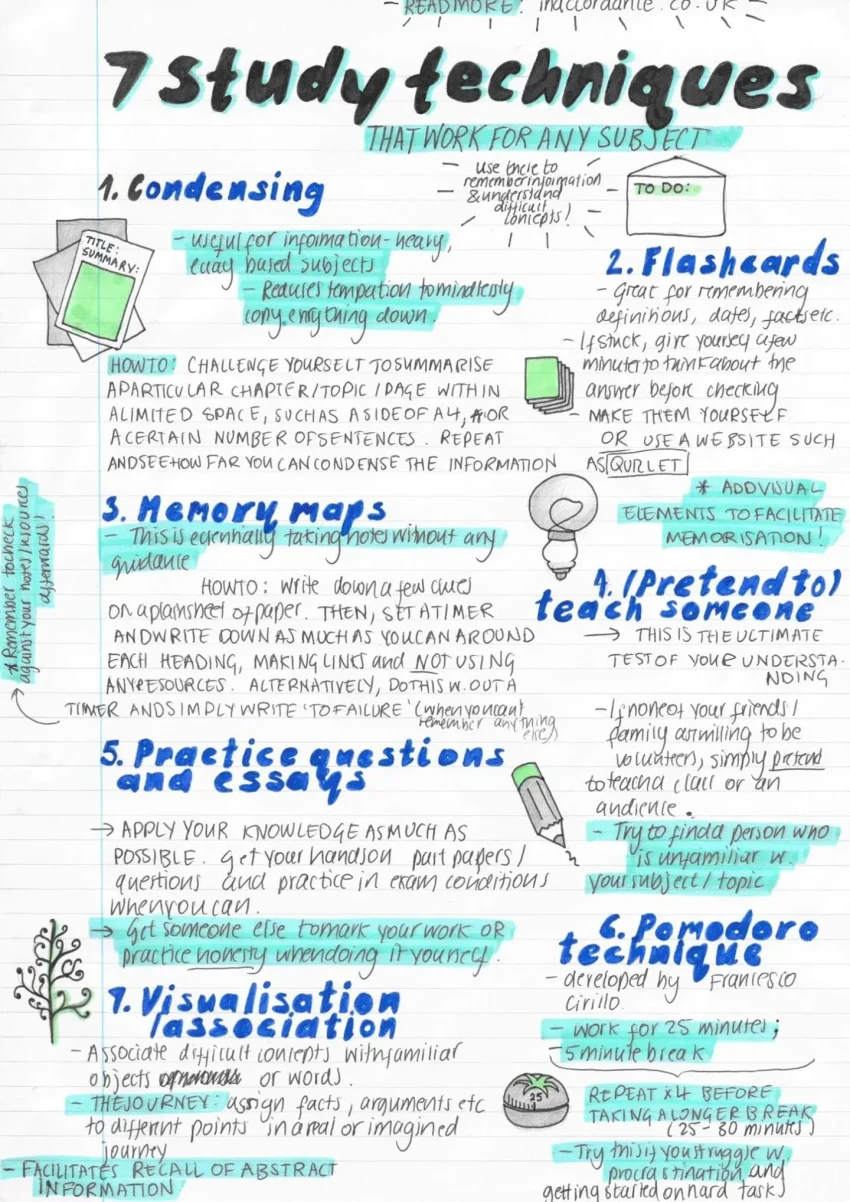 - READ MORE: inaccordance.co.uk -
7 study techniques
THAT WORK FOR ANY SUBJECT
use these to
remember information
& understand
difficult
concepts!
TO DO:
1. Condensing
TITLE:
SUMMARY:
- useful for information-heavy,
essay based subjects
- Reduces tempation to mindlessly
copy erything down.
HOW TO: CHALLENGE YOURSELF TO SUMMARISE
A PARTICULAR CHAPTER/TOPIC / PAGE WITHIN
A LIMITED SPACE, SUCH AS A SIDE OF A4, OR
A CERTAIN NUMBER OF SENTENCES. REPEAT
AND SEE HOW FAR YOU CAN CONDENSE THE INFORMATION
2. Flashcards
- Great for remembering
definitions, dates, facts etc.
- If stuck, give yourself a few
minutes to think about the
answer before checking
- MAKE THEM YOURSELF
OR USE A WEBSITE SUCH
AS QUIZLET
* ADD VISUAL
ELEMENTS TO FACILITATE
MEMORISATION!
3. Memory maps
- This is essentially taking notes without any
guidance
HOW TO: write down a few clues
on a plain sheet of paper. THEN, SET A TIMER
AND WRITE DOWN AS MUCH AS YOU CAN AROUND
EACH HEADING, MAKING LINKS and NOT USING
ANY RESOURCES. ALTERNATIVELY, DO THIS W.OUT A
TIMER AND SIMPLY WRITE 'TO FAILURE' (when you can't
remember anything
else)
* Remember to check
against your notes/resources
afterwards!
4. (Pretend to)
teach someone
→ THIS IS THE ULTIMATE
TEST OF YOUR UNDERSTA-
NDING
- If none of your friends/
family are willing to be
volunteers, simply pretend
to teach a class or an
audience.
- Try to find a person who
is unfamiliar w.
your subject/topic
5. Practice questions
and essays
→ APPLY YOUR KNOWLEDGE AS MUCH AS
POSSIBLE. get your hands on past papers/
questions and practice in exam conditions
when you can.
→ Get someone else to mark your work OR
practice honesty when doing it yourself.
6. Pomodoro
technique
- developed by Francesco
Cirillo
- work for 25 minutes;
- 5 minute break
25
REPEAT x4 BEFORE
TAKING A LONGER BREAK
(25-30 minutes)
- Try this if you struggle w.
procrastination and
getting started on hard tasks
7. Visualisation
/association
- Associate difficult concepts with familiar
objects or words.
- THE JOURNEY: assign facts, arguments etc
to different points in a real or imagined
journey
- FACILITATES RECALL OF ABSTRACT
INFORMATION